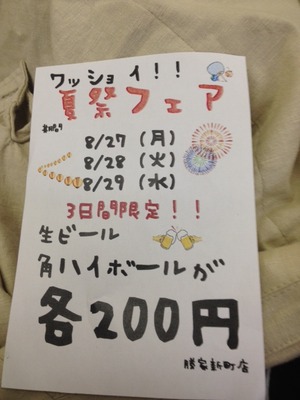 ワッショイ!!
夏祭フェア
8/27(月)
8/28(火)
8/29(水)
3日間限定!!
生ビール
角ハイボールが
各200円
勝家新町店